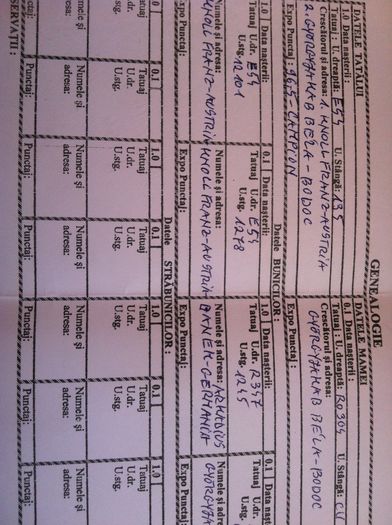 GENEALOGIE
DATELE TATĂLUI
1.0 Data nașterii:
Tatuaj U. dreaptă: E54 U. Stângă: A35
Crescătorul și adresa: 1. KNOLL FRANZ-AUSTRIA
2. GYORGYJAKAB BELA-BODOC
Expo Punctaj: 96,5-CAMPION
DATELE MAMEI
0.1 Data nașterii:
Tatuaj U. dreaptă: RO304 U. Stângă:
Crescătorul și adresa:
GYORGYJAKAB BELA-BODOC
Expo Punctaj:
Datele BUNICILOR:
1.0 Data nașterii:
Tatuaj U.dr. E54
U.stg. 12101
Numele și adresa:
KNOLL FRANZ-AUSTRIA
Expo Punctaj:
0.1 Data nașterii:
Tatuaj U.dr. E54
U.stg. 1278
Numele și adresa:
KNOLL FRANZ-AUSTRIA
Expo Punctaj:
1.0 Data nașterii:
Tatuaj U.dr. R347
U.stg. 1245
Numele și adresa: ARKADIUS
GERMANIA
Expo Punctaj:
0.1 Data
Tatuaj U.dr.
U.stg.
Numele și
Expo Punctaj:
Datele STRĂBUNICILOR:
0.1
Tatuaj U.dr.
U.stg.
Numele și
adresa:
Punctaj:
1.0
Tatuaj U.dr.
U.stg.
Numele și
adresa:
Punctaj:
0.1
Tatuaj U.dr.
U.stg.
Numele și
adresa:
Punctaj:
1.0
Tatuaj U.dr.
U.stg.
Numele și
adresa:
Punctaj:
0.1
Tatuaj U.dr.
U.stg.
Numele și
adresa:
Punctaj:
1.0
Tatuaj U.dr.
U.stg.
Numele și
adresa:
Punctaj: